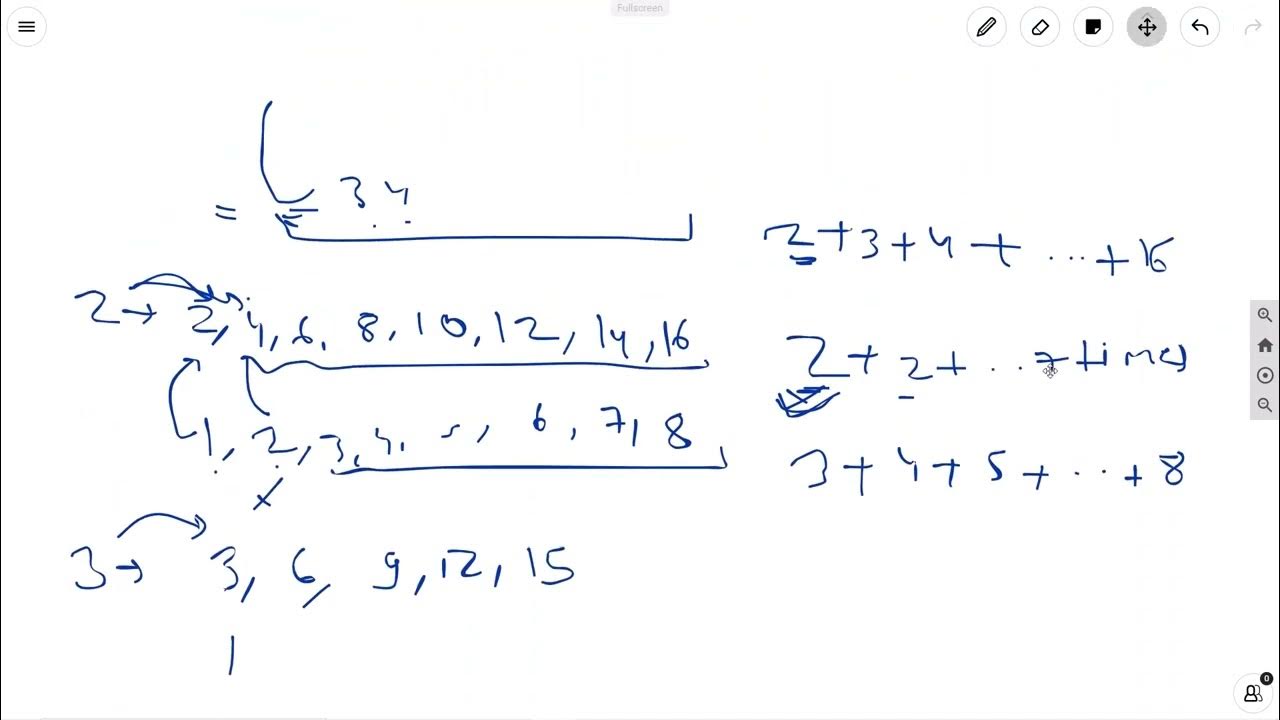 Fullscreen
= 3 4
2 + 3 + 4 + ... + 16
2 → 2, 4, 6, 8, 10, 12, 14, 16
2 + 2 + ... 7 times
1, 2, 3, 4, 5, 6, 7, 8
3 + 4 + 5 + ... + 8
x
3 → 3, 6, 9, 12, 15
1
0